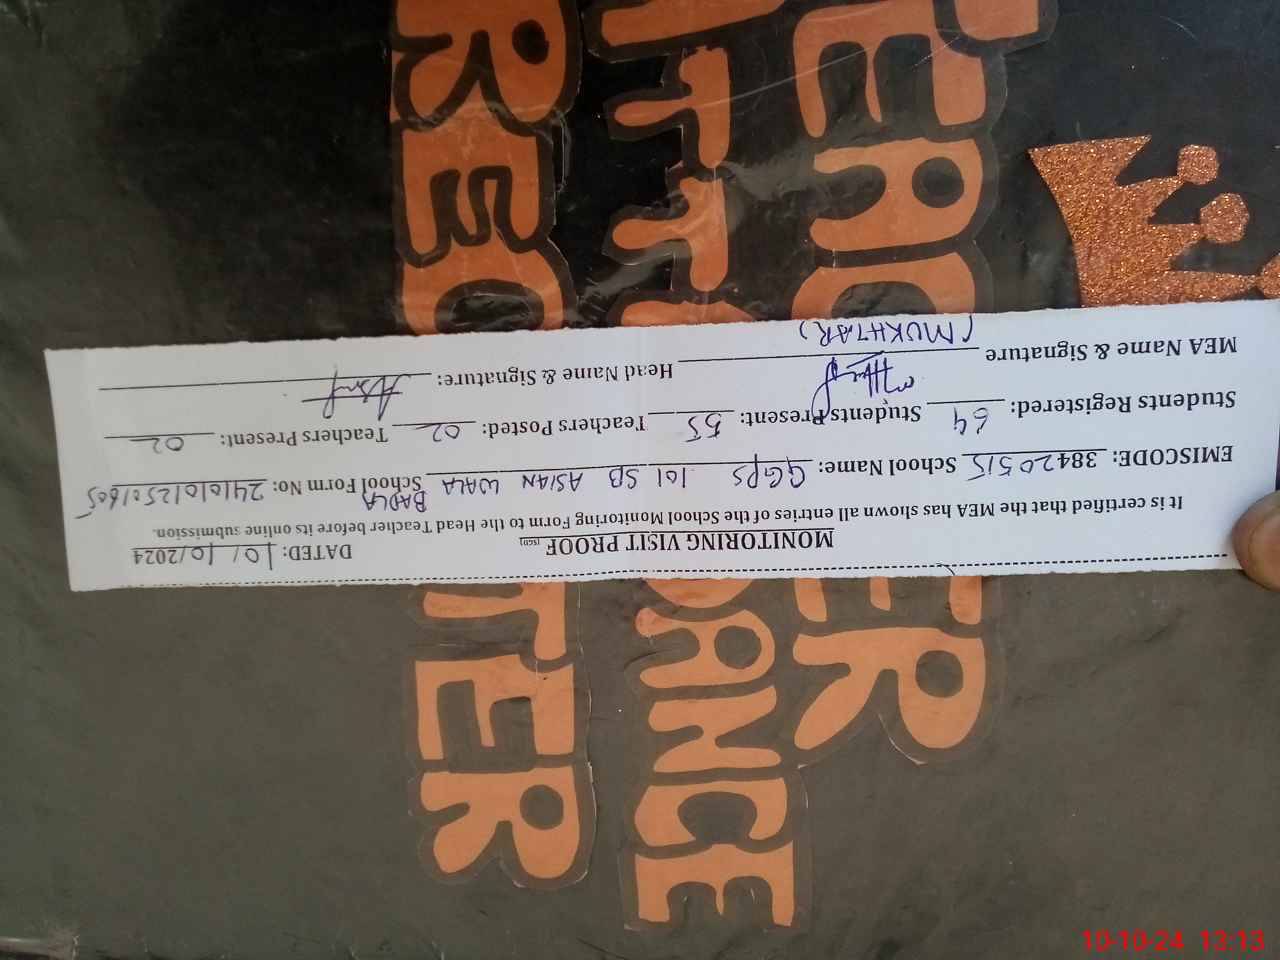 TEACHER
ATTENDANCE
REGISTER
MONITORING VISIT PROOF [SCD]
DATED: 10/10/2024
It is certified that the MEA has shown all entries of the School Monitoring Form to the Head Teacher before its online submission.
EMISCODE: 38420515 School Name: GGPS 101 SB ASIAN WALA BADLA School Form No:
Students Registered: 64 Students Present: 55 Teachers Posted: 02 Teachers Present: 02
MEA Name & Signature Head Name & Signature:
(MUKHTAR)
10-10-24 13:13